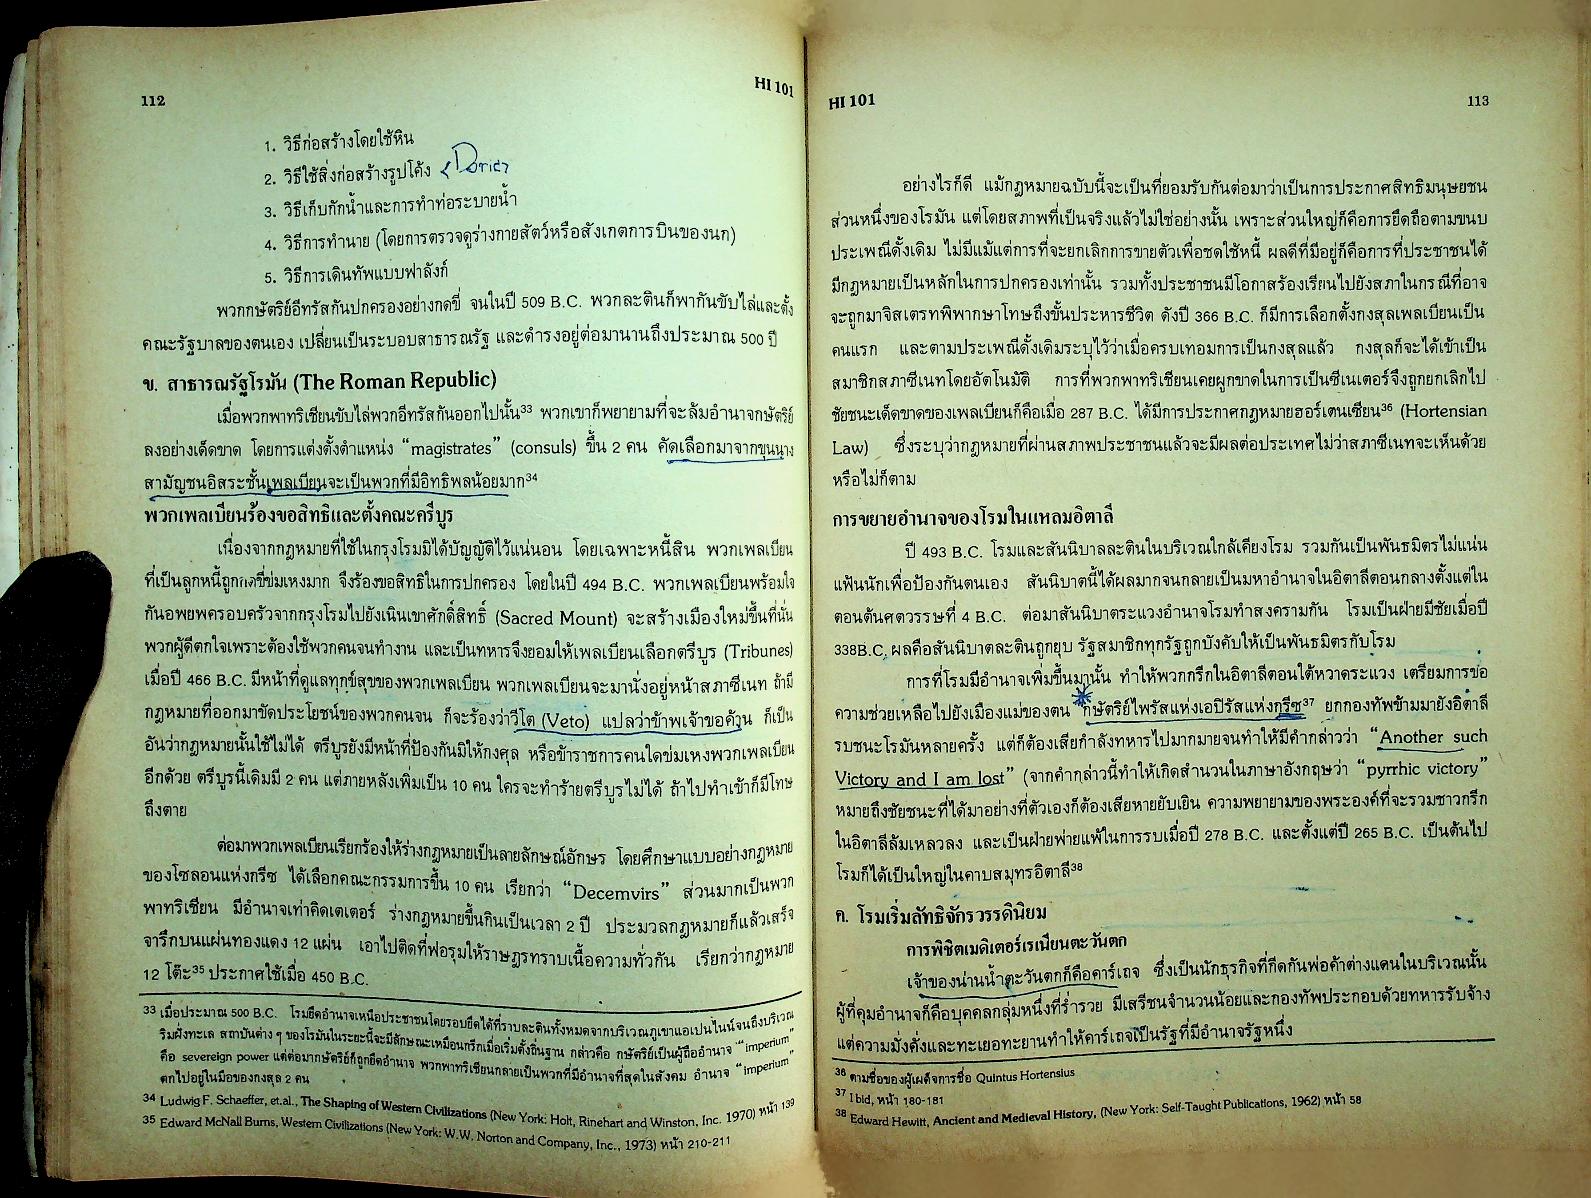 112
HI 101
1. วิธีก่อสร้างโดยใช้หิน
2. วิธีใช้สิ่งก่อสร้างรูปโค้ง
3. วิธีเก็บกักน้ำและการทำท่อระบายน้ำ
4. วิธีการทำนาย (โดยการตรวจดูร่างกายสัตว์หรือสังเกตการบินของนก)
5. วิธีการเดินทัพแบบฟาลังก์
พวกกษัตริย์อีทรัสกันปกครองอย่างกดขี่ จนในปี 509 B.C. พวกละตินก็พากันขับไล่และตั้ง
คณะรัฐบาลของตนเอง เปลี่ยนเป็นระบอบสาธารณรัฐ และดำรงอยู่ต่อมานานถึงประมาณ 500 ปี
ข. สาธารณรัฐโรมัน (The Roman Republic)
เมื่อพวกพาทริเซียนขับไล่พวกอีทรัสกันออกไปนั้น³³ พวกเขาก็พยายามที่จะล้มอำนาจกษัตริย์
ลงอย่างเด็ดขาด โดยการแต่งตั้งตำแหน่ง “magistrates” (consuls) ขึ้น 2 คน คัดเลือกมาจากขุนนาง
สามัญชนอิสระชั้นเพลเบียนจะเป็นพวกที่มีอิทธิพลน้อยมาก³⁴
พวกเพลเบียนร้องขอสิทธิและตั้งคณะตรีบูร
เนื่องจากกฎหมายที่ใช้ในกรุงโรมมิได้บัญญัติไว้แน่นอน โดยเฉพาะหนี้สิน พวกเพลเบียน
ที่เป็นลูกหนี้ถูกกดขี่ข่มเหงมาก จึงร้องขอสิทธิในการปกครอง โดยในปี 494 B.C. พวกเพลเบียนพร้อมใจ
กันอพยพครอบครัวจากกรุงโรมไปยังเนินเขาศักดิ์สิทธิ์ (Sacred Mount) จะสร้างเมืองใหม่ขึ้นที่นั่น
พวกผู้ดีตกใจเพราะต้องใช้พวกคนจนทำงาน และเป็นทหารจึงยอมให้เพลเบียนเลือกตรีบูร (Tribunes)
เมื่อปี 466 B.C. มีหน้าที่ดูแลทุกข์สุขของพวกเพลเบียน พวกเพลเบียนจะมานั่งอยู่หน้าสภาซีเนท ถ้ามี
กฎหมายที่ออกมาขัดประโยชน์ของพวกคนจน ก็จะร้องว่าวีโต (Veto) แปลว่าข้าพเจ้าขอค้าน ก็เป็น
อันว่ากฎหมายนั้นใช้ไม่ได้ ตรีบูรยังมีหน้าที่ป้องกันมิให้กงศุล หรือข้าราชการคนใดข่มเหงพวกเพลเบียน
อีกด้วย ตรีบูรนี้เดิมมี 2 คน แต่ภายหลังเพิ่มเป็น 10 คน ใครจะทำร้ายตรีบูรไม่ได้ ถ้าไปทำเข้าก็มีโทษ
ถึงตาย
ต่อมาพวกเพลเบียนเรียกร้องให้ร่างกฎหมายเป็นลายลักษณ์อักษร โดยศึกษาแบบอย่างกฎหมาย
ของโซลอนแห่งกรีซ ได้เลือกคณะกรรมการขึ้น 10 คน เรียกว่า “Decemvirs” ส่วนมากเป็นพวก
พาทริเซียน มีอำนาจเท่าคิดเตเตอร์ ร่างกฎหมายขึ้นกินเป็นเวลา 2 ปี ประมวลกฎหมายก็แล้วเสร็จ
จารึกบนแผ่นทองแดง 12 แผ่น เอาไปติดที่ฟอรุมให้ราษฎรทราบเนื้อความทั่วกัน เรียกว่ากฎหมาย
12 โต๊ะ³⁵ ประกาศใช้เมื่อ 450 B.C.
³³ เมื่อประมาณ 500 B.C. โรมยึดอำนาจเหนือประชาชนโดยรอบยึดได้ที่ราบละตินทั้งหมดจากบริเวณภูเขาแอเปนไนน์จนถึงบริเวณ
ริมฝั่งทะเล สถาบันต่างๆ ของโรมันในระยะนี้จะมีลักษณะเหมือนกรีกเมื่อเริ่มตั้งถิ่นฐาน กล่าวคือ กษัตริย์เป็นผู้ถืออำนาจ “imperium”
คือ severeign power แต่ต่อมากษัตริย์ก็ถูกยึดอำนาจ พวกพาทริเซียนกลายเป็นพวกที่มีอำนาจที่สุดในสังคม อำนาจ “imperium”
ตกไปอยู่ในมือของกงสุล 2 คน
³⁴ Ludwig F. Schaeffer, et.al., The Shaping of Western Civilizations (New York: Holt, Rinehart and Winston, Inc. 1970) หน้า 139
³⁵ Edward McNall Burns, Western Civilizations (New York: W.W. Norton and Company, Inc., 1973) หน้า 210-211
HI 101
113
อย่างไรก็ดี แม้กฎหมายฉบับนี้จะเป็นที่ยอมรับกันต่อมาว่าเป็นการประกาศสิทธิมนุษยชน
ส่วนหนึ่งของโรมัน แต่โดยสภาพที่เป็นจริงแล้วไม่ใช่อย่างนั้น เพราะส่วนใหญ่ก็คือการยึดถือตามขนบ
ประเพณีดั้งเดิม ไม่มีแม้แต่การที่จะยกเลิกการขายตัวเพื่อชดใช้หนี้ ผลดีที่มีอยู่ก็คือการที่ประชาชนได้
มีกฎหมายเป็นหลักในการปกครองเท่านั้น รวมทั้งประชาชนมีโอกาสร้องเรียนไปยังสภาในกรณีที่อาจ
จะถูกมาจิสเตรทพิพากษาโทษถึงขั้นประหารชีวิต ดังปี 366 B.C. ก็มีการเลือกตั้งกงสุลเพลเบียนเป็น
คนแรก และตามประเพณีดั้งเดิมระบุไว้ว่าเมื่อครบเทอมการเป็นกงสุลแล้ว กงสุลก็จะได้เข้าเป็น
สมาชิกสภาซีเนทโดยอัตโนมัติ การที่พวกพาทริเซียนเคยผูกขาดในการเป็นซีเนเตอร์จึงถูกยกเลิกไป
ชัยชนะเด็ดขาดของเพลเบียนก็คือเมื่อ 287 B.C. ได้มีการประกาศกฎหมายฮอร์เตนเซียน³⁶ (Hortensian
Law) ซึ่งระบุว่ากฎหมายที่ผ่านสภาพประชาชนแล้วจะมีผลต่อประเทศไม่ว่าสภาซีเนทจะเห็นด้วย
หรือไม่ก็ตาม
การขยายอำนาจของโรมในแหลมอิตาลี
ปี 493 B.C. โรมและสันนิบาลละตินในบริเวณใกล้เคียงโรม รวมกันเป็นพันธมิตรไม่แน่น
แฟ้นนักเพื่อป้องกันตนเอง สันนิบาตนี้ได้ผลมากจนกลายเป็นมหาอำนาจในอิตาลีตอนกลางตั้งแต่ใน
ตอนต้นศตวรรษที่ 4 B.C. ต่อมาสันนิบาตระแวงอำนาจโรมทำสงครามกัน โรมเป็นฝ่ายมีชัยเมื่อปี
338B.C. ผลคือสันนิบาตละตินถูกยุบ รัฐสมาชิกทุกรัฐถูกบังคับให้เป็นพันธมิตรกับโรม
การที่โรมมีอำนาจเพิ่มขึ้นมานั้น ทำให้พวกกรีกในอิตาลีตอนใต้หวาดระแวง เตรียมการขอ
ความช่วยเหลือไปยังเมืองแม่ของตน กษัตริย์ไพรัสแห่งเอปิรัสแห่งกรีซ³⁷ ยกกองทัพข้ามมายังอิตาลี
รบชนะโรมันหลายครั้ง แต่ก็ต้องเสียกำลังทหารไปมากมายจนทำให้มีคำกล่าวว่า “Another such
Victory and I am lost” (จากคำกล่าวนี้ทำให้เกิดสำนวนในภาษาอังกฤษว่า “pyrrhic victory”
หมายถึงชัยชนะที่ได้มาอย่างที่ตัวเองก็ต้องเสียหายยับเยิน ความพยายามของพระองค์ที่จะรวมชาวกรีก
ในอิตาลีล้มเหลวลง และเป็นฝ่ายพ่ายแพ้ในการรบเมื่อปี 278 B.C. และตั้งแต่ปี 265 B.C. เป็นต้นไป
โรมก็ได้เป็นใหญ่ในคาบสมุทรอิตาลี³⁸
ค. โรมเริ่มลัทธิจักรวรรดินิยม
การพิชิตเมดิเตอร์เรเนียนตะวันตก
เจ้าของน่านน้ำตะวันตกก็คือคาร์เถจ ซึ่งเป็นนักธุรกิจที่กีดกันพ่อค้าต่างแดนในบริเวณนั้น
ผู้ที่คุมอำนาจก็คือบุคคลกลุ่มหนึ่งที่ร่ำรวย มีเสรีชนจำนวนน้อยและกองทัพประกอบด้วยทหารรับจ้าง
แต่ความมั่งคั่งและทะเยอทะยานทำให้คาร์เถจเป็นรัฐที่มีอำนาจรัฐหนึ่ง
³⁶ ตามชื่อของผู้เผด็จการชื่อ Quintus Hortensius
³⁷ Ibid, หน้า 180-181
³⁸ Edward Hewitt, Ancient and Medieval History, (New York: Self-Taught Publications, 1962) หน้า 58